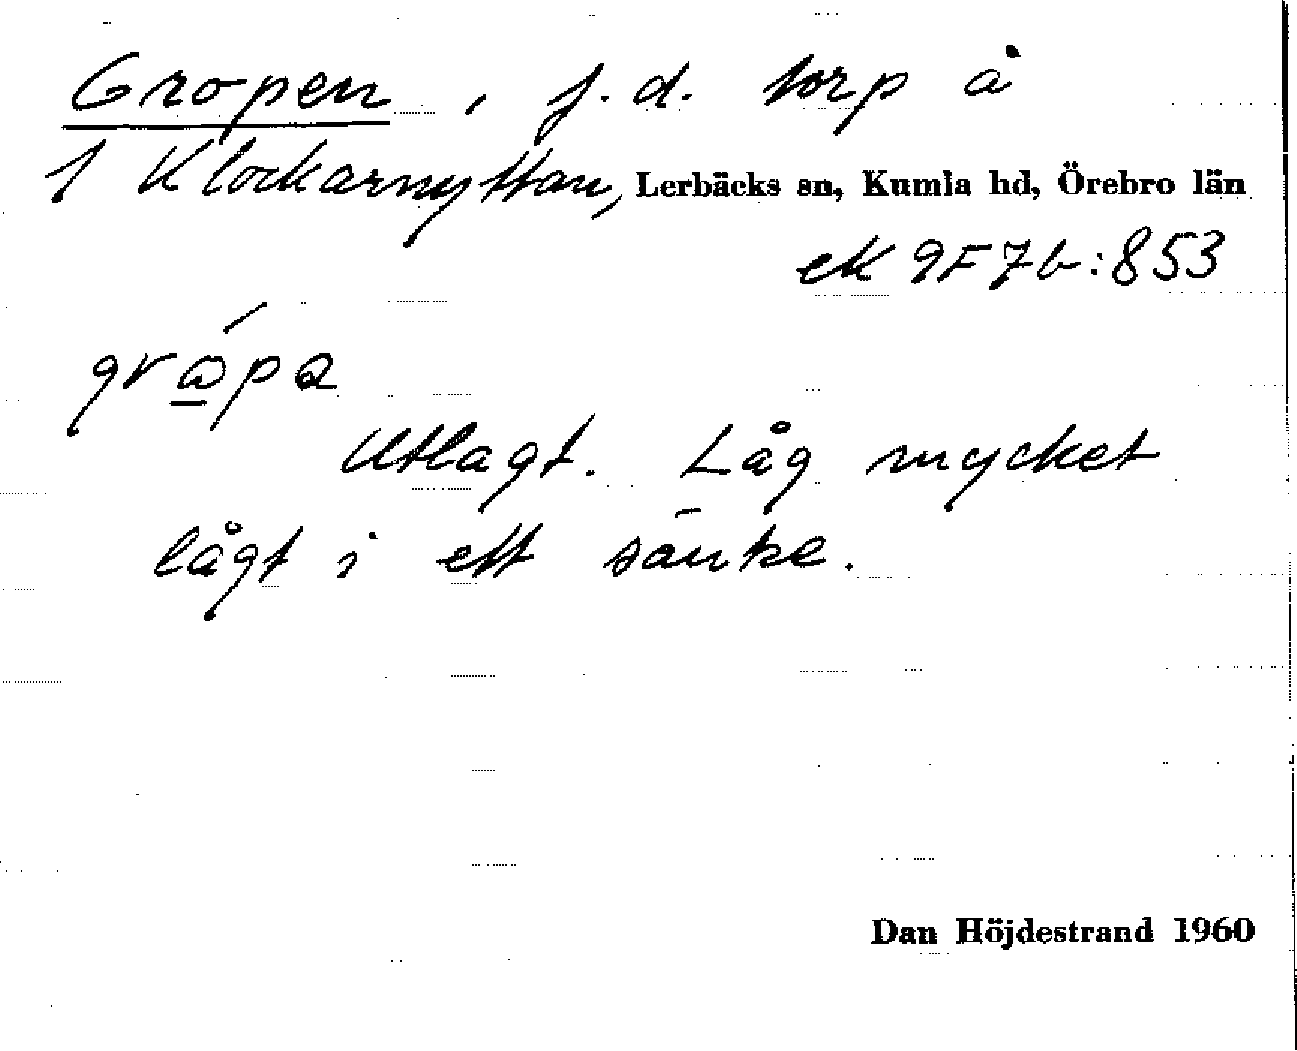 Gropen, f.d. torp å
1 Klockarhyttan, Lerbäcks sn, Kumla hd, Örebro län
ek 9F7b:853
gråpa
Utlagt. Låg mycket
lågt i ett sänke.
Dan Höjdestrand 1960